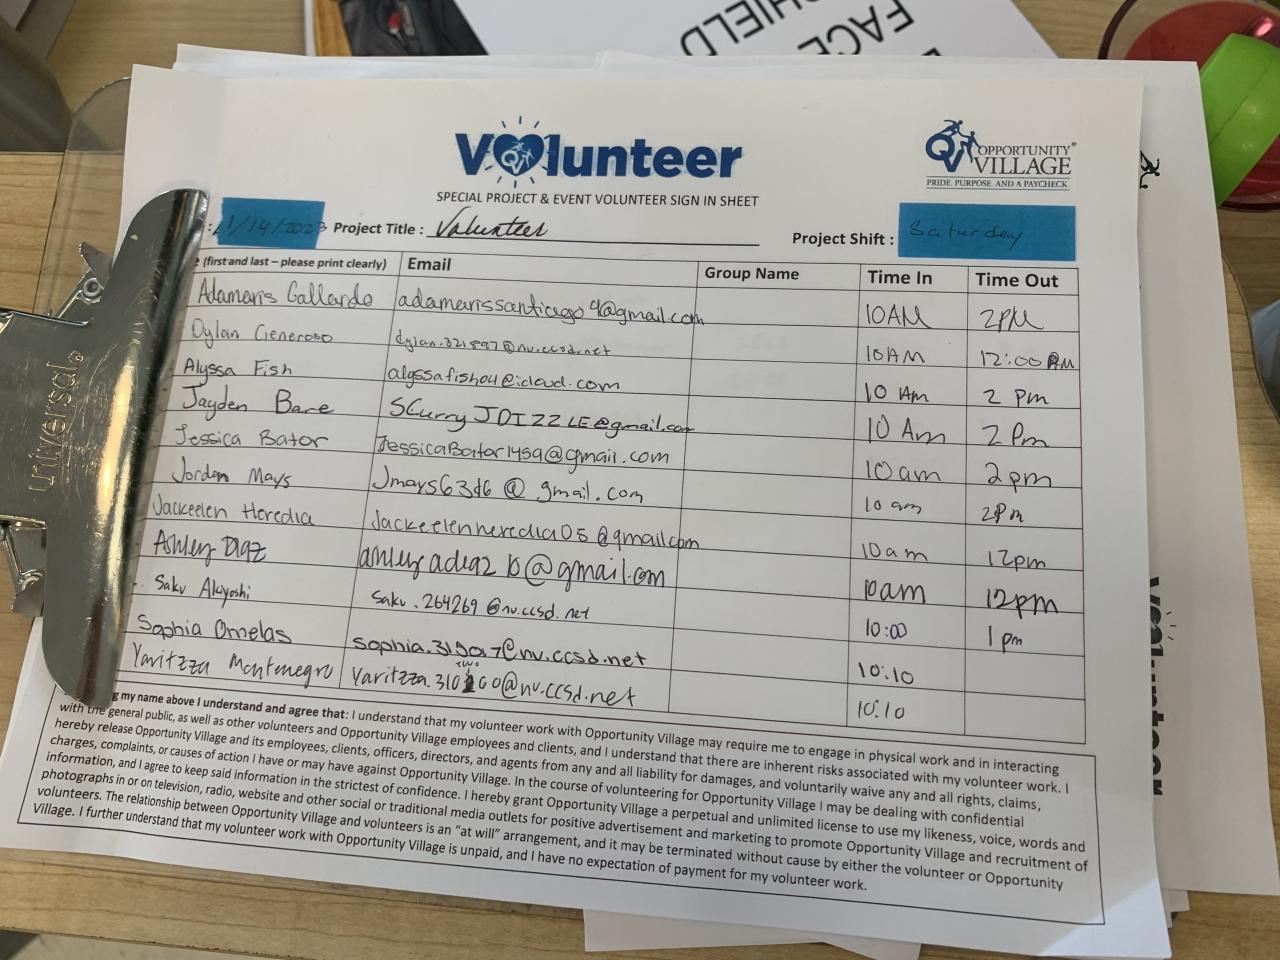 FACE
SHIELD
Volunteer
OPPORTUNITY VILLAGE
PRIDE. PURPOSE. AND A PAYCHECK
SPECIAL PROJECT & EVENT VOLUNTEER SIGN IN SHEET
: 1/14/2023 Project Title : Volunteer Project Shift : Saturday
(first and last – please print clearly) Email Group Name Time In Time Out
Adamaris Gallardo adamarissantiago4@gmail.com 10AM 2PM
Dylan Generoso dylan.321897@nv.ccsd.net 10AM 12:00 PM
Alyssa Fish alyssafish04@icloud.com 10 AM 2 pm
Jayden Bare SCurryJDIZZLE@gmail.com 10 Am 2 Pm
Jessica Bator JessicaBator1459@gmail.com 10am 2pm
Jordan Mays Jmays6386@gmail.com 10 am 2pm
Jackeelen Heredia Jackeelenheredia05@gmail.com 10am 12pm
Ashley Diaz 10am 12pm
Saku Akiyoshi saku.264269@nv.ccsd.net 10:00 1pm
Sophia Ornelas 10:10
Yaritzza Montenegro Yaritzza.310260@nv.ccsd.net 10:10
two
my name above I understand and agree that: I understand that my volunteer work with Opportunity Village may require me to engage in physical work and in interacting
with the general public, as well as other volunteers and Opportunity Village employees and clients, and I understand that there are inherent risks associated with my volunteer work. I
hereby release Opportunity Village and its employees, clients, officers, directors, and agents from any and all liability for damages, and voluntarily waive any and all rights, claims,
charges, complaints, or causes of action I have or may have against Opportunity Village. In the course of volunteering for Opportunity Village I may be dealing with confidential
information, and I agree to keep said information in the strictest of confidence. I hereby grant Opportunity Village a perpetual and unlimited license to use my likeness, voice, words and
photographs in or on television, radio, website and other social or traditional media outlets for positive advertisement and marketing to promote Opportunity Village and recruitment of
volunteers. The relationship between Opportunity Village and volunteers is an "at will" arrangement, and it may be terminated without cause by either the volunteer or Opportunity
Village. I further understand that my volunteer work with Opportunity Village is unpaid, and I have no expectation of payment for my volunteer work.
universal